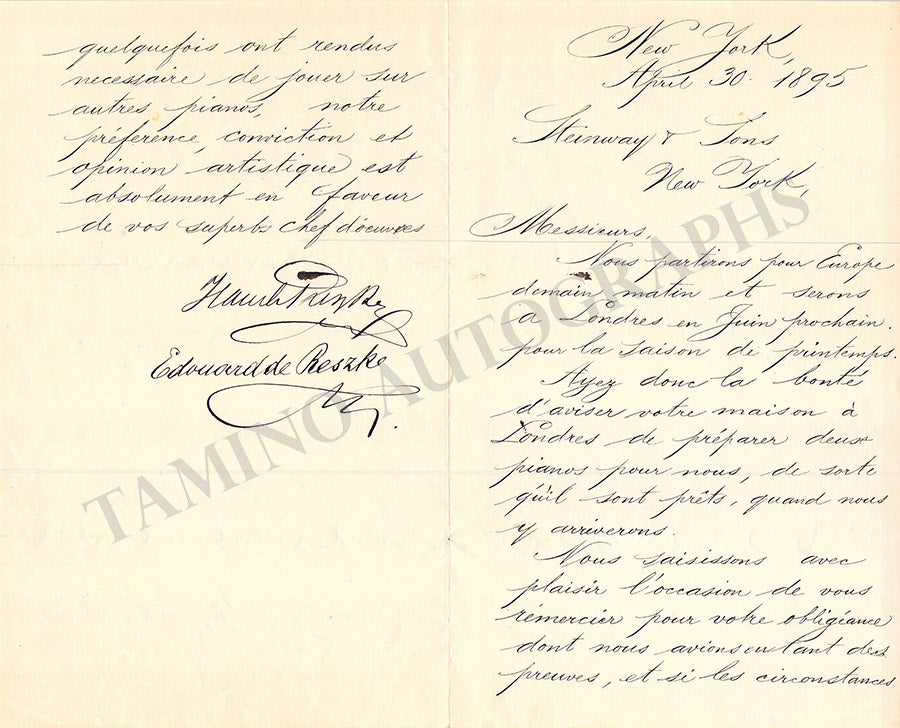 New York,
April 30. 1895
Steinway & Sons
New York,
Messieurs,
Nous partirons pour Europe
demain matin et serons
a Londres en Juin prochain.
pour la saison de printemps.
Ayez donc la bonté
d'aviser votre maison à
Londres de préparer deux
pianos pour nous, de sorte
qu'il sont prêts, quand nous
y arriverons.
Nous saisissons avec
plaisir l'occasion de vous
rémercier pour votre obligéance
dont nous avions eu tant des
preuves, et si les circonstances
quelquefois ont rendus
necessaire de jouer sur
autres pianos, notre
préference, conviction et
opinion artistique est
absolument en faveur
de vos superbs chef d'oeuvres
Edouard de Reszke
TAMINO AUTOGRAPHS